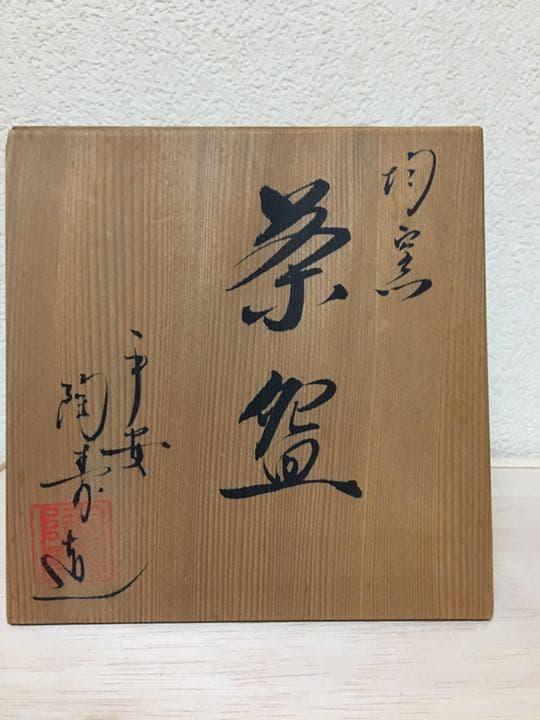 均窯
茶盌
平安
陶寿造